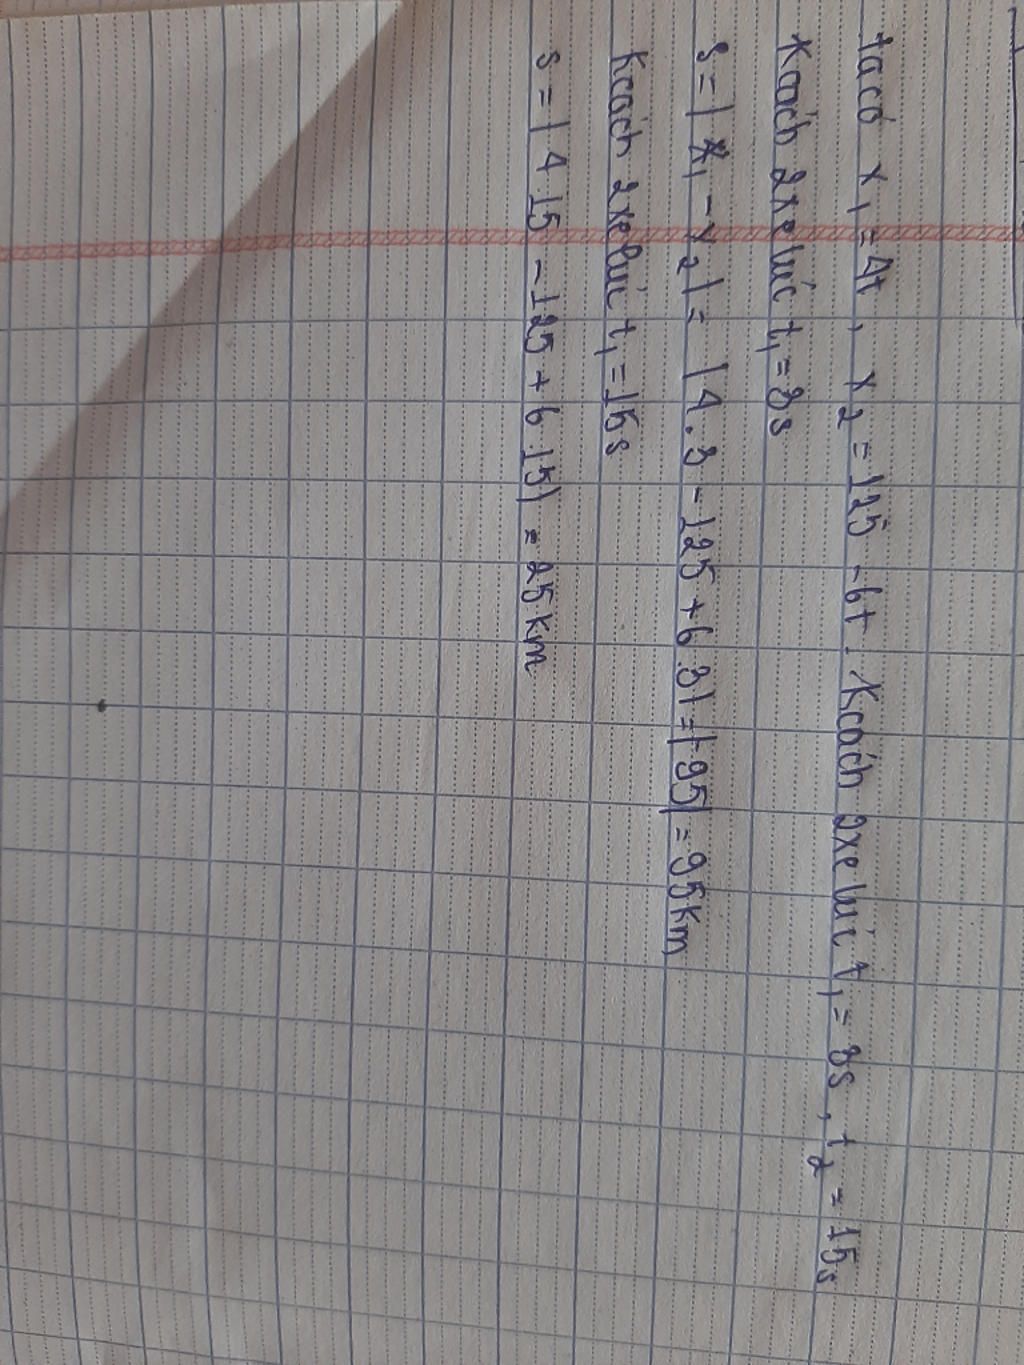 Ta có x₁ = 4t, x₂ = 125 - 6t. Kcách 2xe lúc t₁ = 3s, t₂ = 15s
Kcách 2xe lúc t₁ = 3s
s = | x₁ - x₂ | = | 4.3 - 125 + 6.3 | = |-95| = 95km
Kcách 2xe lúc t₁ = 15s
s = | 4.15 - 125 + 6.15 | = 25km